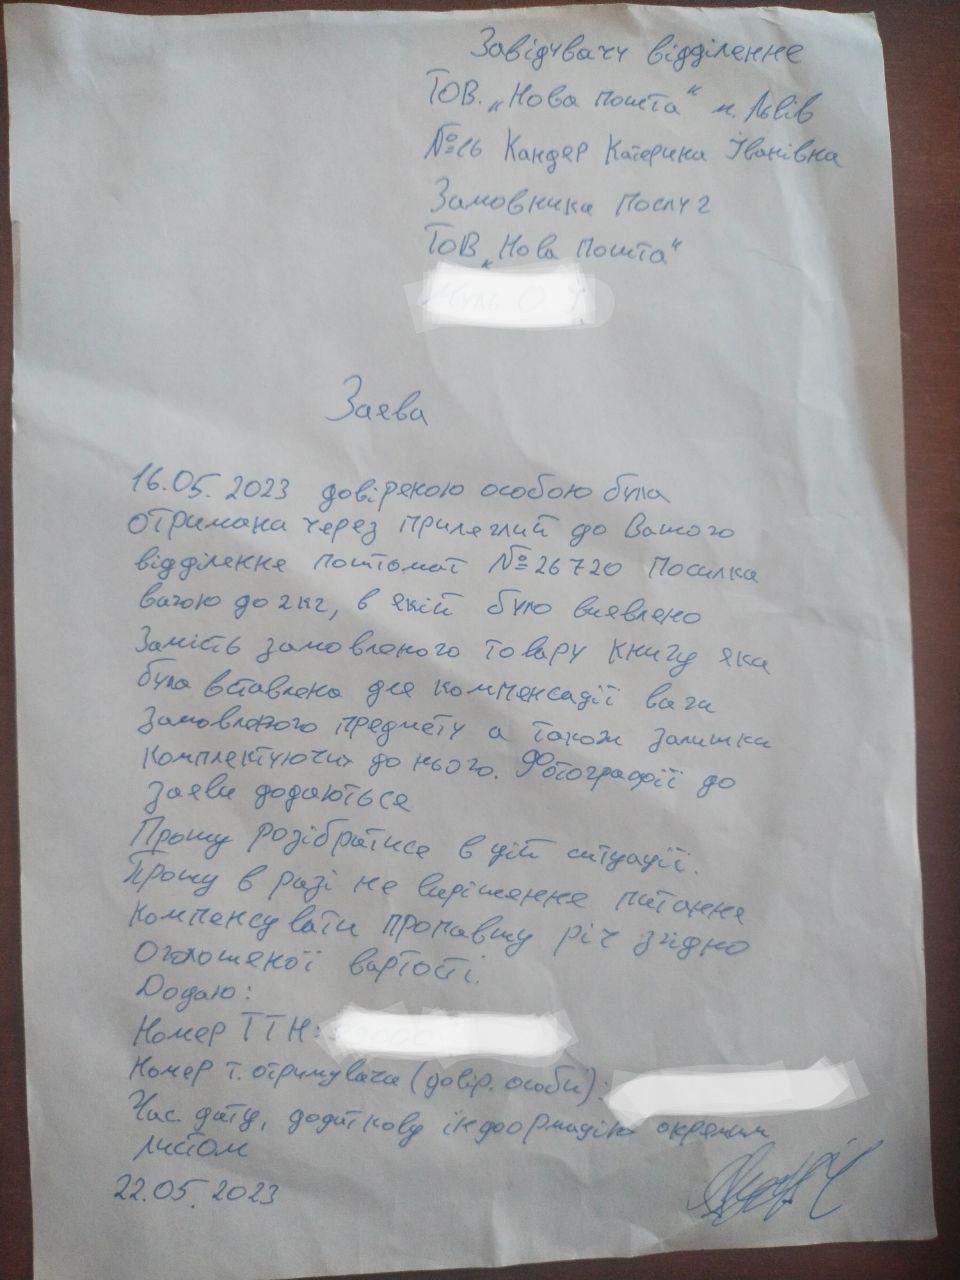 Завідувачу відділення
ТОВ. „Нова пошта" м. Львів
№26 Кандер Катерина Іванівна
Замовника послуг
ТОВ „Нова Пошта"
Заява
16.05.2023 довіреною особою була
отримана через прилеглий до Вашого
відділення поштомат №26720 посилка
вагою до 2кг, в якій було виявлено
Замість замовленого товару книгу яка
була вставлена для компенсації ваги
замовленого предмету а також залишки
комплектуючих до нього. Фотографії до
заяви додаються
Прошу розібратися в цій ситуації.
Прошу в разі не вирішення питання
компенсувати пропавшу річ згідно
Оголошеної вартості.
Додаю:
Номер ТТН:
Номер т. отримувача (довір. особи):
Час дату, додаткову інформацію окремим
листом
22.05.2023